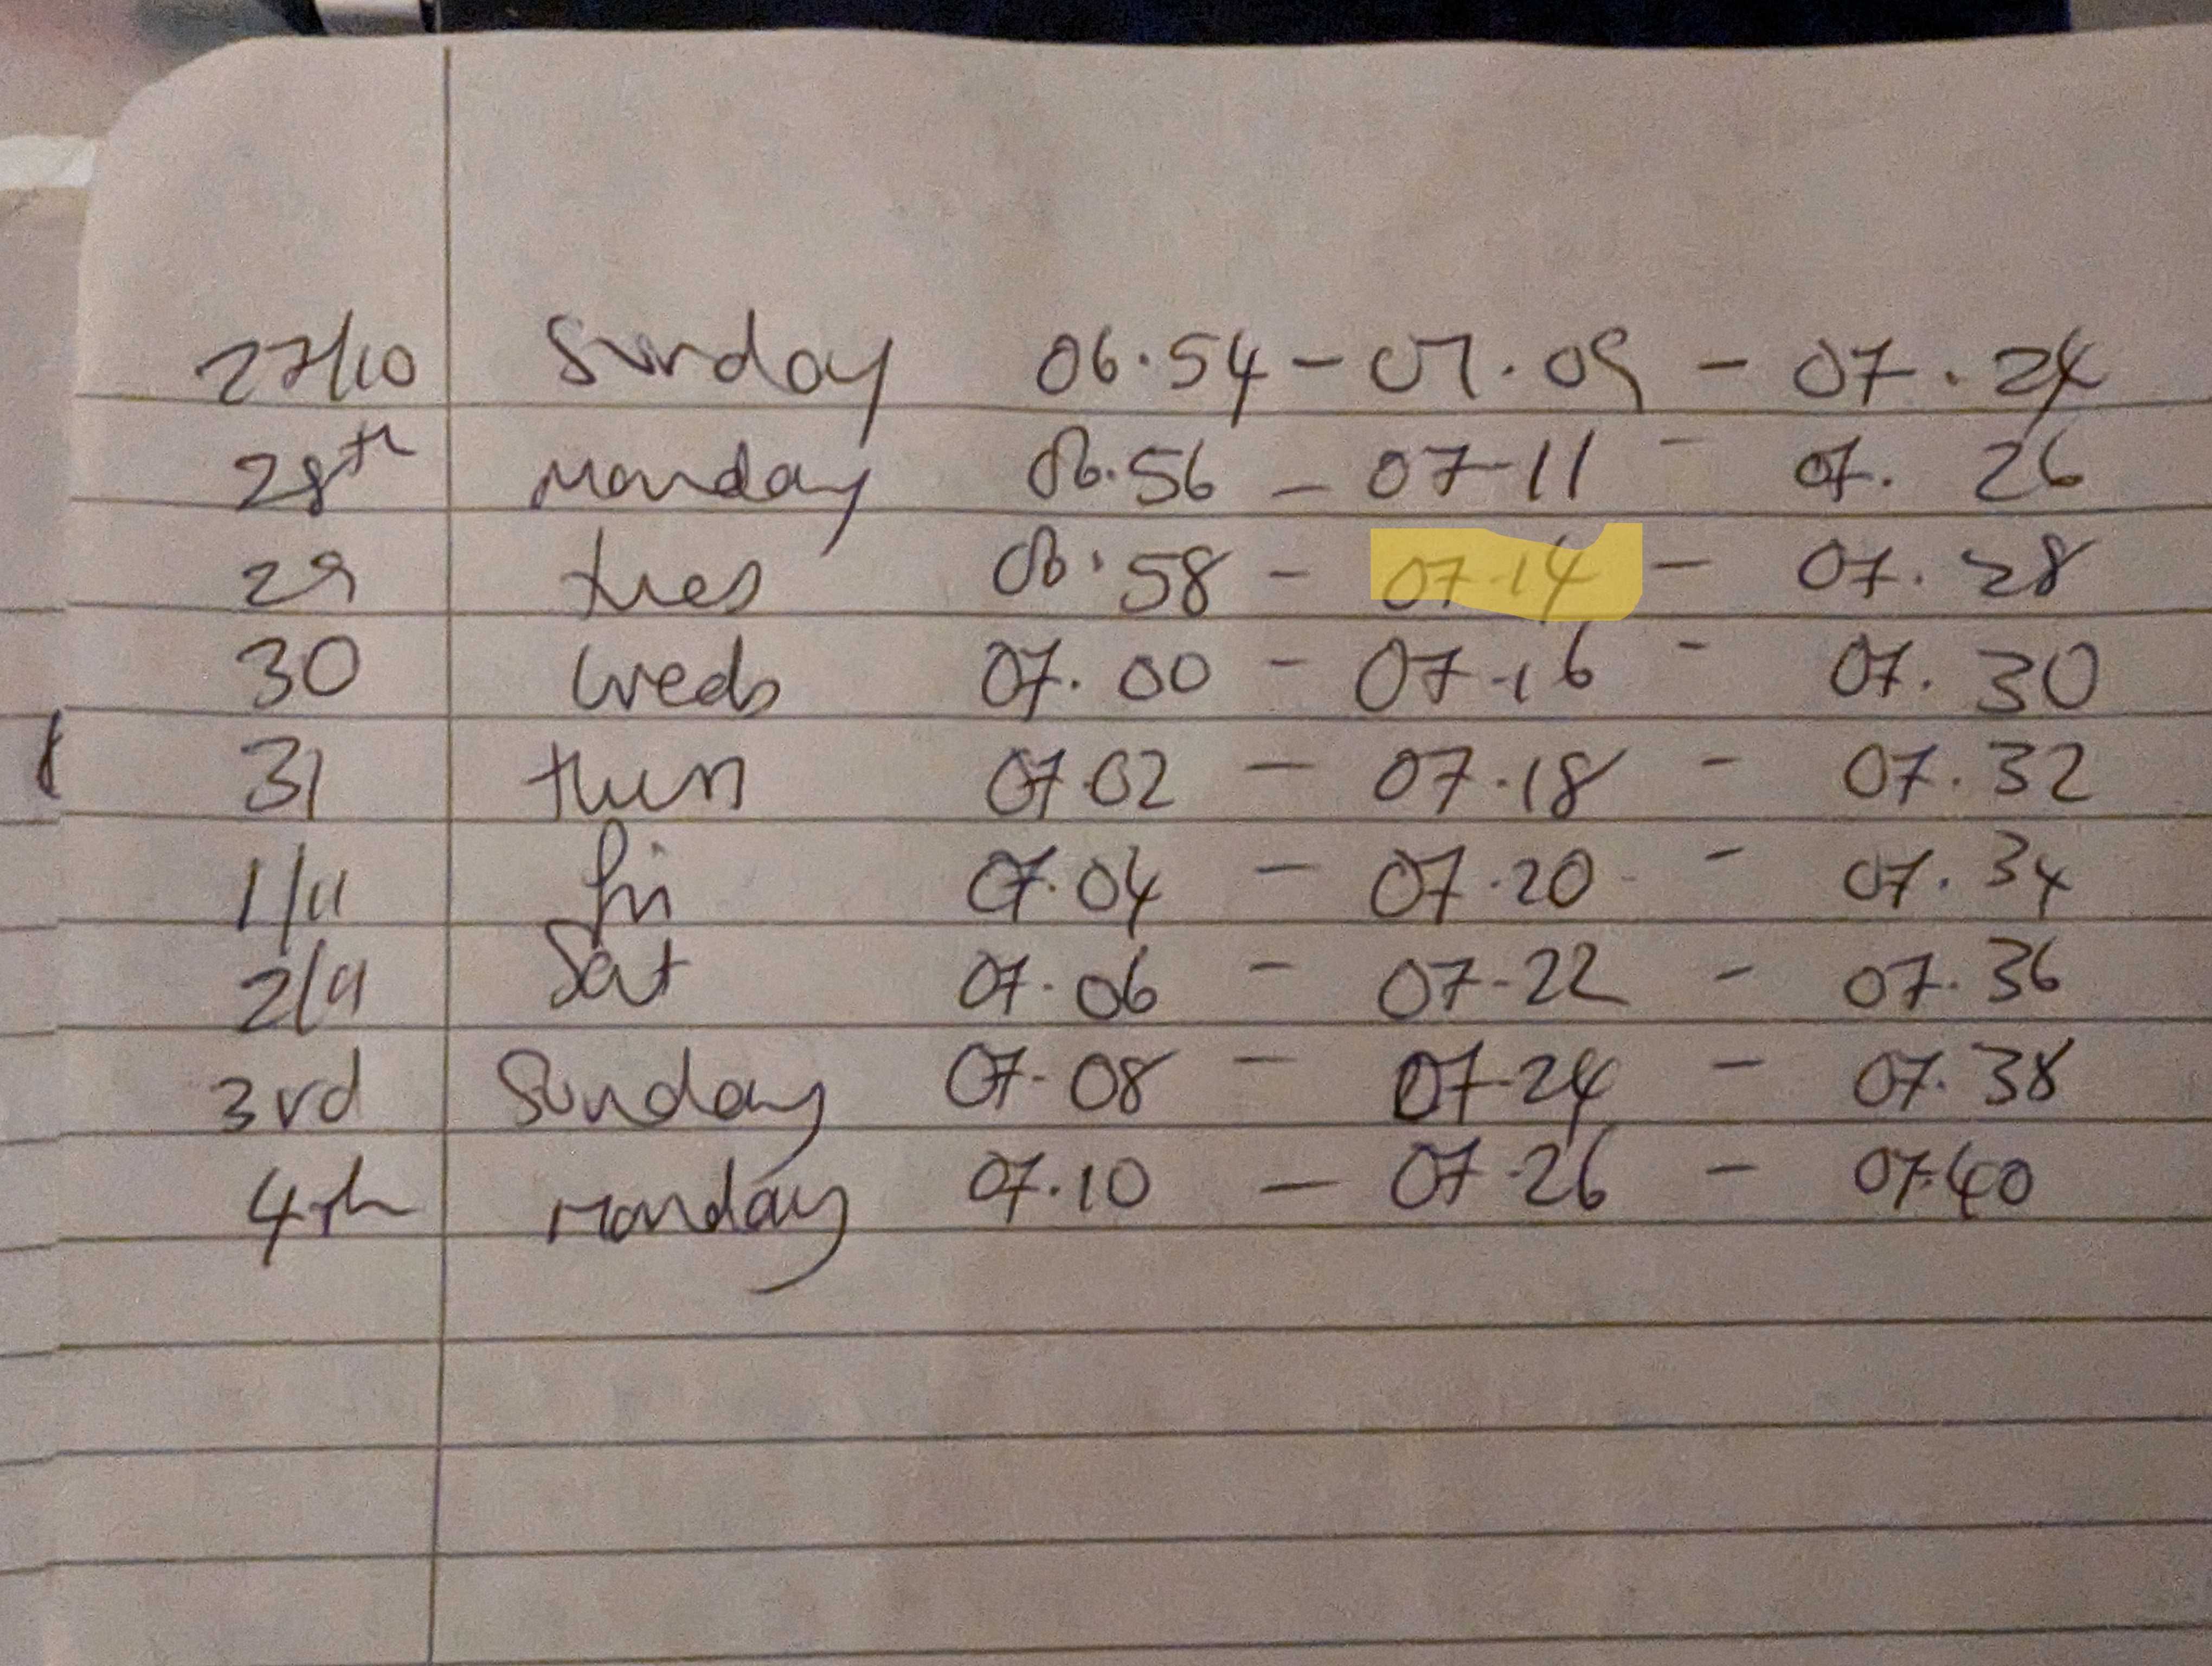 27/10 Sunday 06.54 - 07.09 - 07.24
28th Monday 06.56 - 07-11 - 07. 26
29 tues 06.58 - 07-14 - 07. 28
30 weds 07.00 - 07-16 - 07. 30
31 thurs 07.02 - 07.18 - 07.32
1/11 fri 07.04 - 07.20 - 07.34
2/11 Sat 07.06 - 07-22 - 07.36
3rd Sunday 07-08 - 07-24 - 07.38
4th Monday 07.10 - 07-26 - 07.40